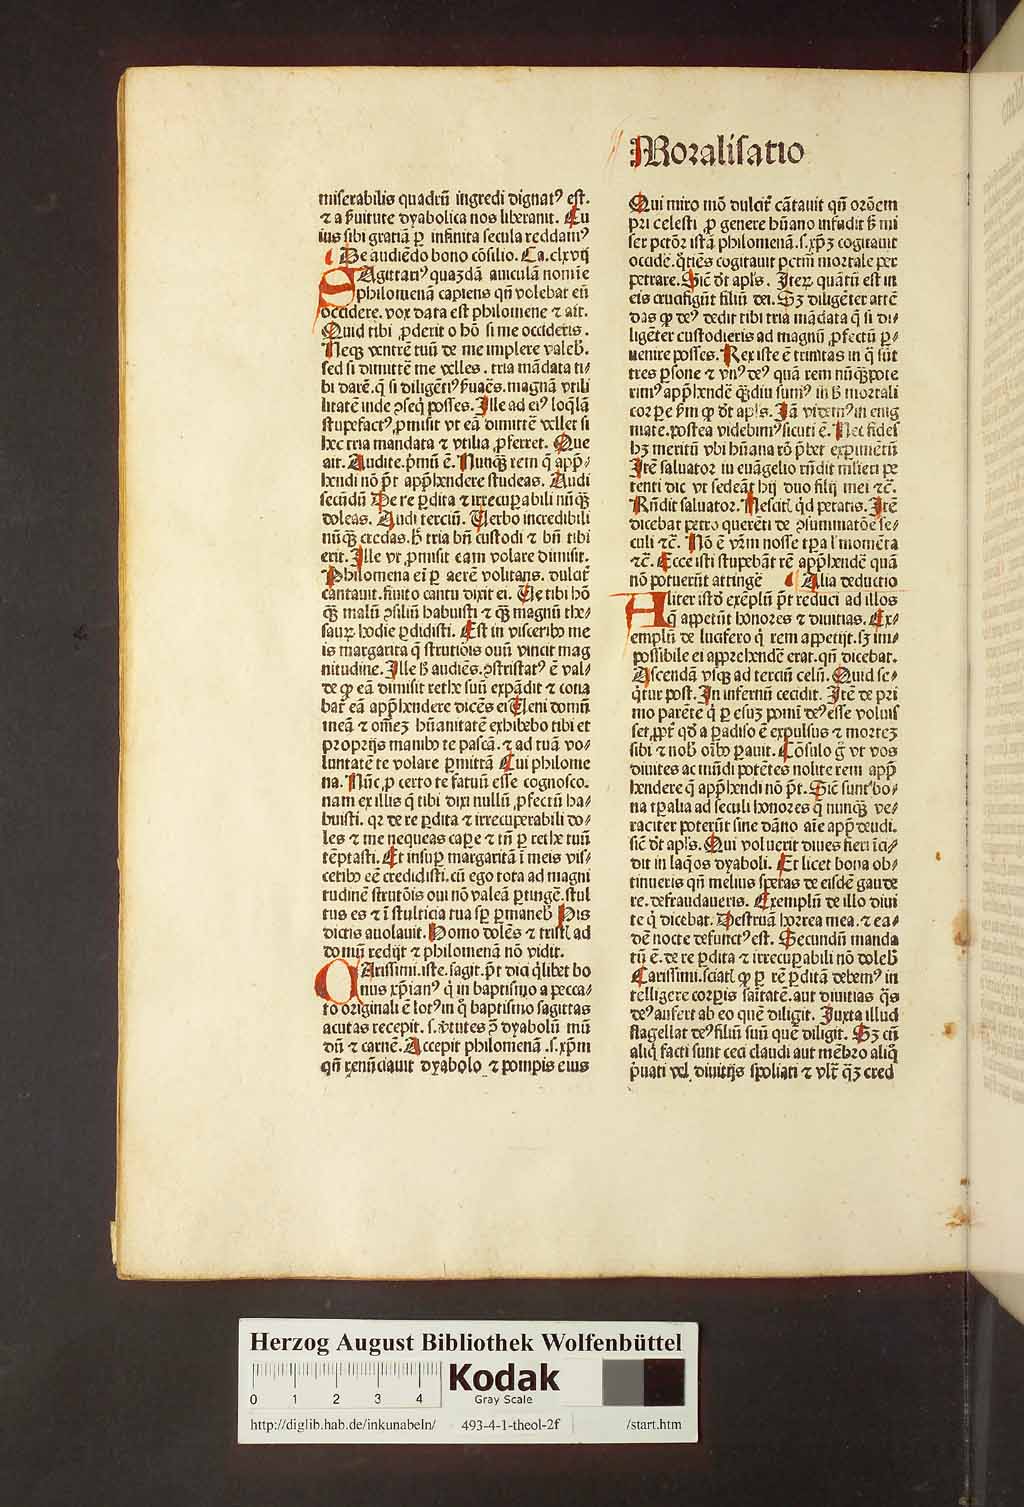 Moralisatio
miserabilis quadrū ingredi dignatꝰ est.
⁊ a ẜuitute dyabolica nos liberauit. Cu
ius sibi gratiā ꝑ infinita secula reddamꝰ
De audiēdo bono cōsilio. Ca. clxvij
SAgittariꝰ quazdā auiculā nomīe
philomenā capiens qn̄ volebat eū
occidere. vox data est philomene ⁊ ait.
Quid tibi ꝓderit o hō si me occideris.
Neqꝫ ventrē tuū de me implere valeb̄.
sed si dimittē me velles. tria mādata ti⸗
bi darē. q̄ si diligētiꝰ ẜuaēs. magnā vtili
litatē inde ꝯseq̄ posses. Ille ad eiꝰ loq̄lā
stupefactꝰ, ꝓmisit vt eā dimittē vellet si
hec tria mandata ⁊ vtilia ꝓferret. Que
ait. Audite. pͥmū ē. Nunqꝫ rem q̄ app̄⸗
hendi nō pōt app̄hendere studeas. Audi
secūdū De re ꝑdita ⁊ irrecuꝑabili nūqꝫ
doleas. Audi terciū. Verbo incredibili
nūqꝫ credas. h̄ tria bn̄ custodi ⁊ bn̄ tibi
erit. Ille vt ꝓmisit eam volare dimisit.
Philomena eī ꝑ aerē volitans. dulcit̄
cantauit. finito cantu dixit ei. Ve tibi hō
qꝫ malū ꝯsiliū habuisti ⁊ qꝫ magnū the⸗
saurꝫ hodie ꝑdidisti. Est in visceribꝰ me
is margarita q̄ strutiōis ouū vincit mag
nitudine. Ille h̄ audiēs. ꝯtristatꝰ ē val⸗
de ꝙ eā dimisit rethe suū expādit ⁊ cona
bat̄ eā app̄hendere dicēs ei Veni domū
meā ⁊ omēꝫ hūanitatē exhibebo tibi et
proprijs manibꝰ te pascā. ⁊ ad tuā vo⸗
luntatē te volare ꝑmittā Cui philome
na. Nūc ꝓ certo te fatuū esse cognosco.
nam ex illis q̄ tibi dixi nullū ꝓfectū ha⸗
buisti. qꝛ de re ꝑdita ⁊ irrecuperabili do⸗
les ⁊ me nequeas capere ⁊ tn̄ ꝑ rethe tuū
tēptasti. Et insuꝑ margaritā ī meis vis⸗
ceribꝰ eē credidisti. cū ego tota ad magni
tudinē strutōis oui nō valeā ꝑtingē. stul
tus es ⁊ ī stulticia tua sꝑ ꝑmaneb̄ His
dictis auolauit. Homo dolēs ⁊ tristꝭ ad
domū redijt ⁊ philomenā nō vidit.
CArissimi. iste. sagit. pōt dici qͥlibet bo
nus xp̄ianꝰ qͥ in baptismo a pecca⸗
to originali ē lotꝰ in qͦ baptismo sagittas
acutas recepit. s. v̓tutes ꝯ̄ dyabolū mū
dū ⁊ carnē. Accepit philomenā .s. xp̄m
qn̄ renūciauit dyabolo ⁊ pompis eius
Qui miro mō dulcit̄ cātauit qn̄ orōem
pr̄i celesti ꝓ genere hūano infudit h̄ mi
ser pctōr istā philomenā. s. xp̄ꝫ cogitauit
occidē. qͦtiēs cogitauit pctm̄ mortale per
petrare. Sic̄ dt̄ apl̄s. Iterꝫ quātū est in
eis crucifigūt filiū dei. Sꝫ diligēter attē
das ꝙ deꝰ dedit tibi tria mādata q̄ si di⸗
ligēter custodieris ad magnū ꝓfectū ꝑ⸗
uenire posses. Rex iste ē trinitas in q̄ sūt
tres ꝑsone ⁊ vnꝰ deꝰ quā rem nūqꝫ pote
rimꝰ app̄hendē qꝫdiu sumꝰ in h̄ mortali
corꝑe ẜm ꝙ dt̄ apl̄s. Iā videmꝰ in enig
mate. postea videbimꝰ sicuti ē. Nec fides
hꝫ meritū vbi hūana rō p̄bet expimētū
Itē saluator in euāgelio rn̄dit mlieri pe
tenti dic vt sedeāt hij duo filij mei ⁊c̄.
Rn̄dit saluator. Nescitꝭ qͥd petatis. Itē
dicebat petro querēti de ꝯsummatōe se⸗
culi ⁊c̄. Nō ē vr̄m nosse tꝑa ł momēta
⁊c̄. Ecce isti stupebāt rē app̄hendē quā
nō potuerūt attingē Alia deductio
ALiter istd̄ exēplū pōt reduci ad illos
qͥ appetūt honores ⁊ diuitias. Ex⸗
emplū de lucifero qͥ rem appetijt. sꝫ im⸗
possibile ei apprehendē erat. qn̄ dicebat.
Ascendā vsqꝫ ad terciū celū. Quid se⸗
qͥtur post. In infernū cecidit. Itē de pri
mo parēte qͥ ꝑ esuꝫ pomi deꝰ esse voluis
set, ꝓpt̄ qd̄ a ꝑadiso ē expulsus ⁊ morteꝫ
sibi ⁊ nob̄ oībꝰ ꝑauit. Cōsulo g̊ vt vos
diuites ac mūdi potētes nolite rem app̄
hendere q̄ app̄hendi nō pōt. Sic̄ sunt bo⸗
na tꝑalia ad seculi honores q̄ nunqꝫ ve⸗
raciter poterūt sine dāno aīe app̄hendi.
sic̄ dt̄ apl̄s. Qui voluerit diues fieri īci⸗
dit in laq̄os dyaboli. Et licet bona ob⸗
tinueris qn̄ melius speras de eisdē gaude
re. defraudaueris. Exemplū de illo diui
te qͥ dicebat. Destruā horrea mea. ⁊ ea⸗
dē nocte defunctꝰ est. Secundū manda
tū ē. de re ꝑdita ⁊ irrecuꝑabili nō doleb̄
Carissimi. sciatꝭ ꝙ ꝑ rē ꝑditā debemꝰ in
telligere corpis sanitatē. aut diuitias q̄s
deꝰ aufert ab eo quē diligit. Iuxta illud
flagellat deꝰ filiū suū quē diligit. Sꝫ cū
aliqͥ facti sunt ceci claudi aut mēbro aliqͦ
pͥuati vel diuitijs spoliati ⁊ vlt̄ qꝫ cred
Herzog August Bibliothek Wolfenbüttel
0 1 2 3 4
Kodak
Gray Scale
http://diglib.hab.de/inkunabeln/ 493-4-1-theol-2f /start.htm